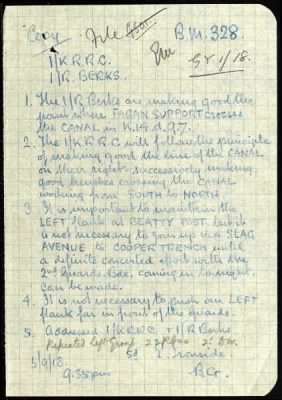 Copy File B.M. 328.
SY 1/18.
1/K.R.R.C.
1/R. BERKS.
1. The 1/R Berks are making good the
point where FABAN SUPPORT crosses
the CANAL in K.14.d.9.7.
2. The 1/KRRC will follow the principle
of making good the line of the CANAL
on their right successively making
good trenches crossing the CANAL
working from SOUTH to NORTH.
3. It is important to maintain the
LEFT flank at BEATTY POST but it
is not necessary to join up via SLAG
AVENUE to COOPER TRENCH until
a definite concerted effort with the
2nd Guards Bde, coming in to night,
can be made.
4. It is not necessary to push our LEFT
flank far in front of the Guards.
5. Addressed 1/KRRC + 1/R Berks
Repeated Left Group 2 Div.
Sd Ironside
5/9/18. B.G.
9.35pm